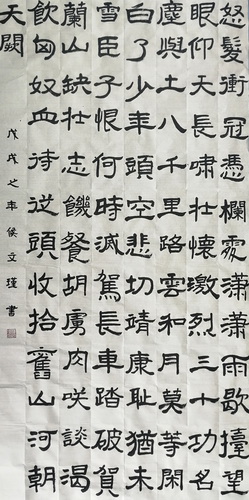 怒髮衝冠憑欄處瀟瀟雨歇擡望
眼仰天長嘯壯懷激烈三十功名
塵與土八千里路雲和月莫等閑
白了少年頭空悲切靖康耻猶未
雪臣子恨何時滅駕長車踏破賀
蘭山缺壯志饑餐胡虜肉咲談渴
飲匈奴血待從頭收拾舊山河朝
天闕
戊戌之年侯立瑾書